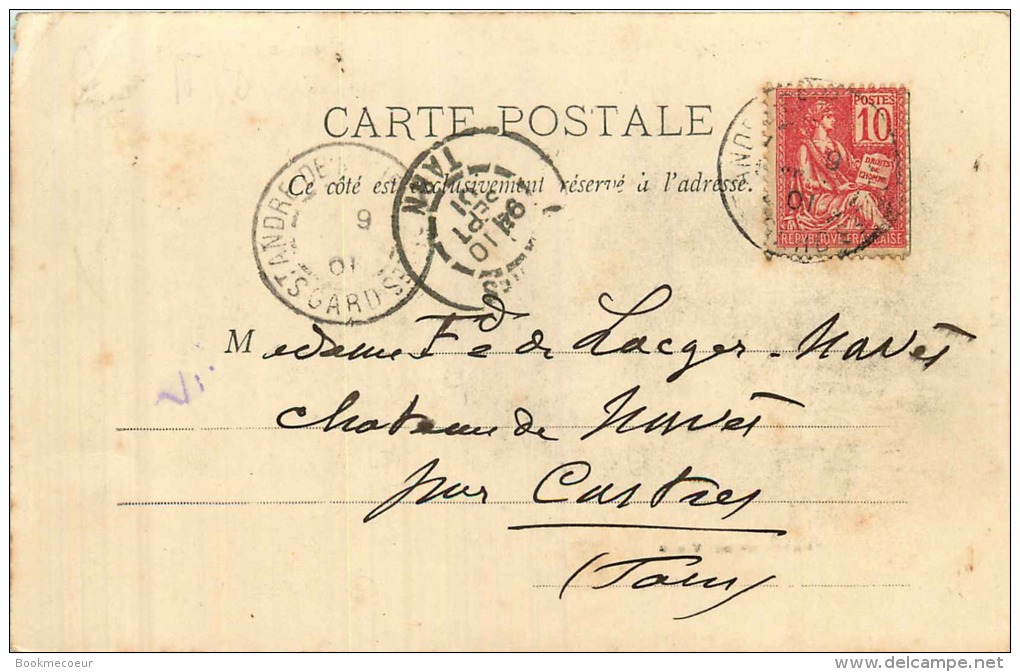 CARTE POSTALE
Ce côté est exclusivement réservé à l'adresse.
POSTES
10
DROITS DE L'HOMME
REPUBLIQUE FRANÇAISE
ST ANDRE DE
9
01
GARD
TARN
10
SEPT
01
Madame Fd de Lacger-Navès
Chateau de Navès
par Castres
(Tarn)
Bookmecoeur
www.delcampe.net